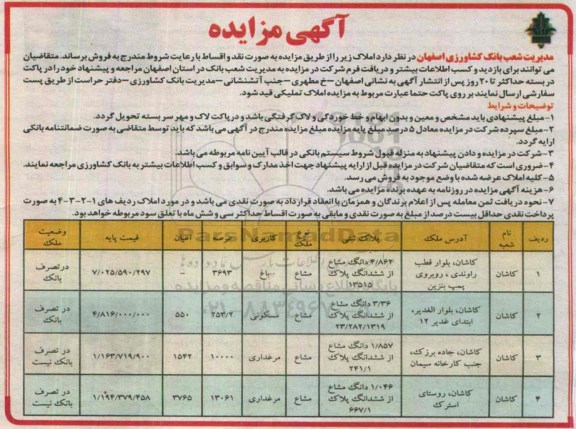 آگهی مزایده
مدیریت شعب بانک کشاورزی اصفهان در نظر دارد املاک زیر را از طریق مزایده به صورت نقد و اقساط با رعایت شروط مندرج به فروش برساند. متقاضیان
می توانند برای بازدید و کسب اطلاعات بیشتر و دریافت فرم شرکت در مزایده به مدیریت شعب بانک در استان اصفهان مراجعه و پیشنهاد خود را در پاکت
در بسته حداکثر تا ۲۰ روز پس از انتشار آگهی به نشانی اصفهان -خ مطهری -جنب آتشنشانی -مدیریت بانک کشاورزی -دفتر حراست از طریق پست
سفارشی ارسال نمایند بر روی پاکت حتما عبارت مربوط به مزایده املاک تملیکی قید شود.
توضیحات و شرایط
۱- مبلغ پیشنهادی باید مشخص و معین و بدون ابهام و خط خوردگی و لاک گرفتگی باشد و در پاکت لاک و مهر سر بسته تحویل گردد.
۲- مبلغ سپرده شرکت در مزایده معادل ۵ درصد مبلغ پایه مزایده مندرج در آگهی می باشد که باید توسط متقاضی به صورت ضمانتنامه بانکی
ارایه گردد.
۳- شرکت در مزایده و دادن پیشنهاد به منزله قبول شروط سیستم بانکی در قالب آیین نامه مربوطه می باشد.
۴- ضروری است که متقاضیان شرکت در مزایده قبل از ارایه پیشنهاد جهت اخذ مدارک و سوابق و کسب اطلاعات بیشتر به بانک کشاورزی مراجعه نمایند.
۵- کلیه املاک عرضه شده با وضع موجود به فروش می رسد.
۶- هزینه آگهی مزایده در روزنامه به عهده برنده مزایده می باشد.
۷- نحوه دریافت ثمن معامله پس از اعلام برندگان و همزمان با انعقاد قرارداد به صورت نقدی می باشد و در مورد املاک ردیف های ۱-۲-۳-۴ به صورت
پرداخت نقدی حداقل بیست درصد از مبلغ به صورت نقدی و مابقی به صورت اقساط حداکثر سی و شش ماه با تعلق سود مربوطه خواهد بود.
ردیف نام شعبه آدرس ملک پلاک ثبتی نوع ملک کاربری عرصه اعیان قیمت پایه وضعیت ملک
۱ کاشان کاشان، بلوار قطب راوندی، روبروی پمپ بنزین ۴/۸۶۴ دانگ مشاع از ششدانگ پلاک ۱۳۵۱۵ مشاع باغ ۳۶۹۳ ۷/۰۲۵/۵۹۰/۲۹۷ در تصرف بانک
۲ کاشان کاشان، بلوار الغدیر، ابتدای غدیر ۱۲ ۳/۳۶ دانگ مشاع از ششدانگ پلاک ۲۳/۲۸۲/۱۳۱۹ مشاع مسکونی ۲۵۳/۲ ۵۵۰ ۴/۸۱۶/۰۰۰/۰۰۰ در تصرف بانک
۳ کاشان کاشان، جاده برزک، جنب کارخانه سیمان ۱/۸۵۷ دانگ مشاع از ششدانگ پلاک ۲۴۱/۱ مشاع مرغداری ۱۰۰۰۰ ۱۵۴۲ ۱/۱۶۳/۷۱۹/۹۰۰ در تصرف بانک نیست
۴ کاشان کاشان، روستای استرک ۱/۰۴۶ دانگ مشاع از ششدانگ پلاک ۶۶۷/۱ مشاع مرغداری ۱۳۰۶۱ ۳۷۶۵ ۱/۱۹۴/۳۷۹/۴۵۸ در تصرف بانک نیست
ParsNamadData